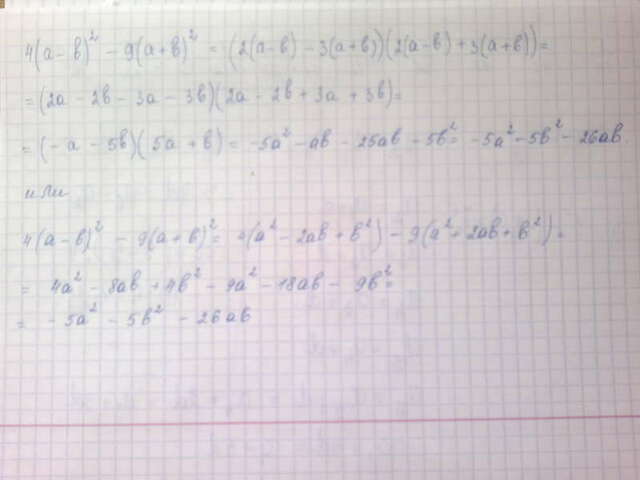 4(a-b)² - 9(a+b)² = (2(a-b) - 3(a+b))(2(a-b) + 3(a+b)) =
= (2a - 2b - 3a - 3b)(2a - 2b + 3a + 3b) =
= (-a - 5b)(5a + b) = -5a² - ab - 25ab - 5b² = -5a² - 5b² - 26ab
или
4(a-b)² - 9(a+b)² = 4(a² - 2ab + b²) - 9(a² + 2ab + b²) =
= 4a² - 8ab + 4b² - 9a² - 18ab - 9b² =
= -5a² - 5b² - 26ab